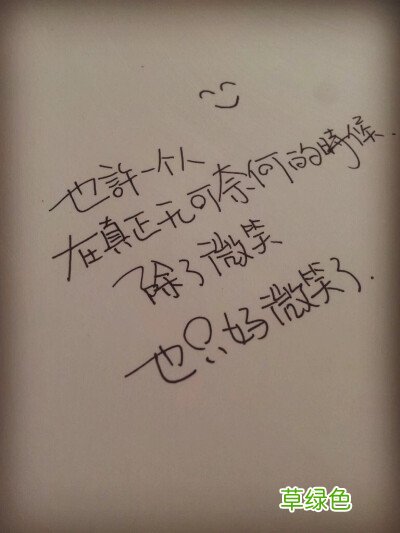 也許一个人
在真正无可奈何的時候.
除了微笑
也只好微笑了.
草绿色